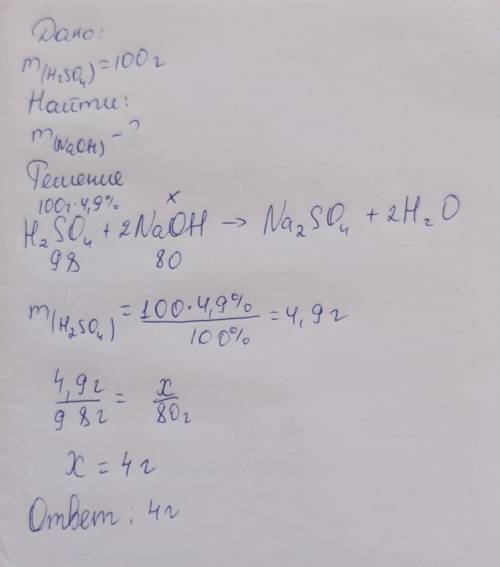 Дано:
m(H₂SO₄)=100г
Найти:
m(NaOH)-?
Решение
100г·4,9% x
H₂SO₄ + 2NaOH → Na₂SO₄ + 2H₂O
98 80
m(H₂SO₄) = 100·4,9% / 100% = 4,9г
4,9г / 98г = x / 80г
x = 4г
Ответ: 4г